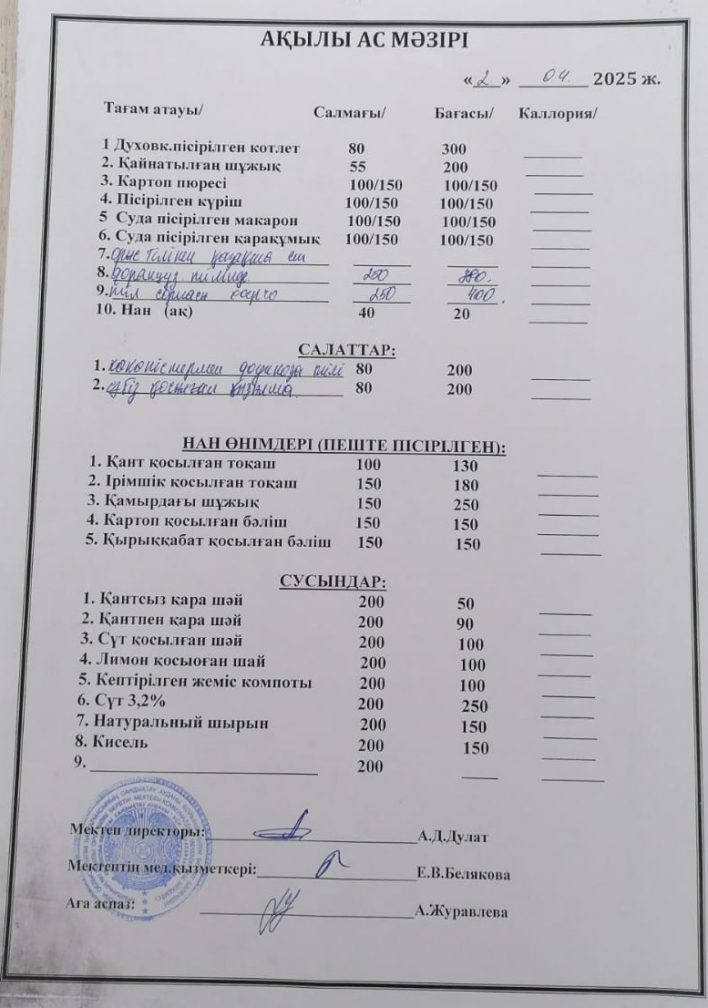 АҚЫЛЫ АС МӘЗІРІ
« 2 » 04. 2025 ж.
Тағам атауы/ Салмағы/ Бағасы/ Каллория/
1 Духовк.пісірілген котлет 80 300
2. Қайнатылған шұжық 55 200
3. Картоп пюресі 100/150 100/150
4. Пісірілген күріш 100/150 100/150
5 Суда пісірілген макарон 100/150 100/150
6. Суда пісірілген қарақұмық 100/150 100/150
7.
8. 250
9. 250 400.
10. Нан (ақ) 40 20
САЛАТТАР:
1. 80 200
2. қосылған қызылша 80 200
НАН ӨНІМДЕРІ (ПЕШТЕ ПІСІРІЛГЕН):
1. Қант қосылған тоқаш 100 130
2. Ірімшік қосылған тоқаш 150 180
3. Қамырдағы шұжық 150 250
4. Картоп қосылған бәліш 150 150
5. Қырыққабат қосылған бәліш 150 150
СУСЫНДАР:
1. Қантсыз қара шәй 200 50
2. Қантпен қара шәй 200 90
3. Сүт қосылған шәй 200 100
4. Лимон қосыоған шай 200 100
5. Кептірілген жеміс компоты 200 100
6. Сүт 3,2% 200 250
7. Натуральный шырын 200 150
8. Кисель 200 150
9. 200
Мектеп директоры: А.Д.Дулат
Мектептің мед.қызметкері: Е.В.Белякова
Аға аспаз: А.Журавлева